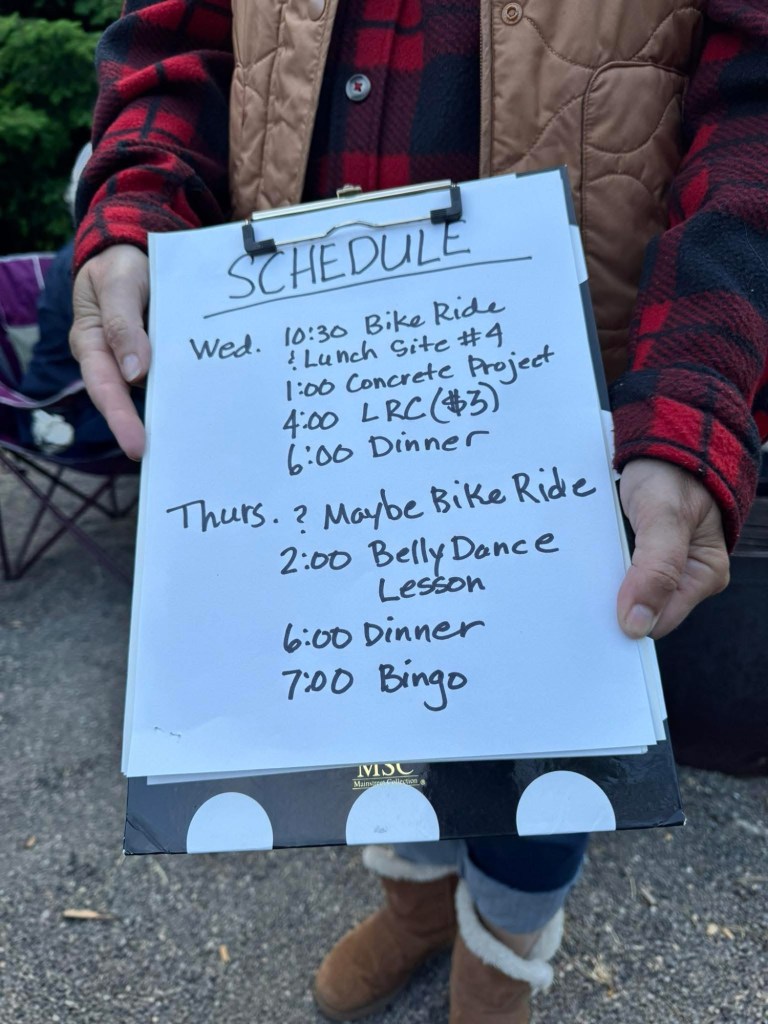 SCHEDULE
Wed. 10:30 Bike Ride
& Lunch Site #4
1:00 Concrete Project
4:00 LRC ($3)
6:00 Dinner
Thurs. ? Maybe Bike Ride
2:00 Belly Dance
Lesson
6:00 Dinner
7:00 Bingo
MSC
Mainstreet Collection